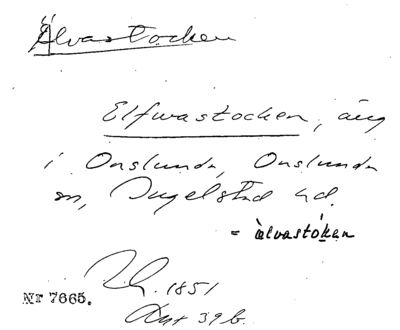 Älvastocken
Elfwastocken, äng
i Onslunda, Onslunda
sn, Ingelstad hd.
= älvastoken
1851
Nr 7665.
Akt 39 b.